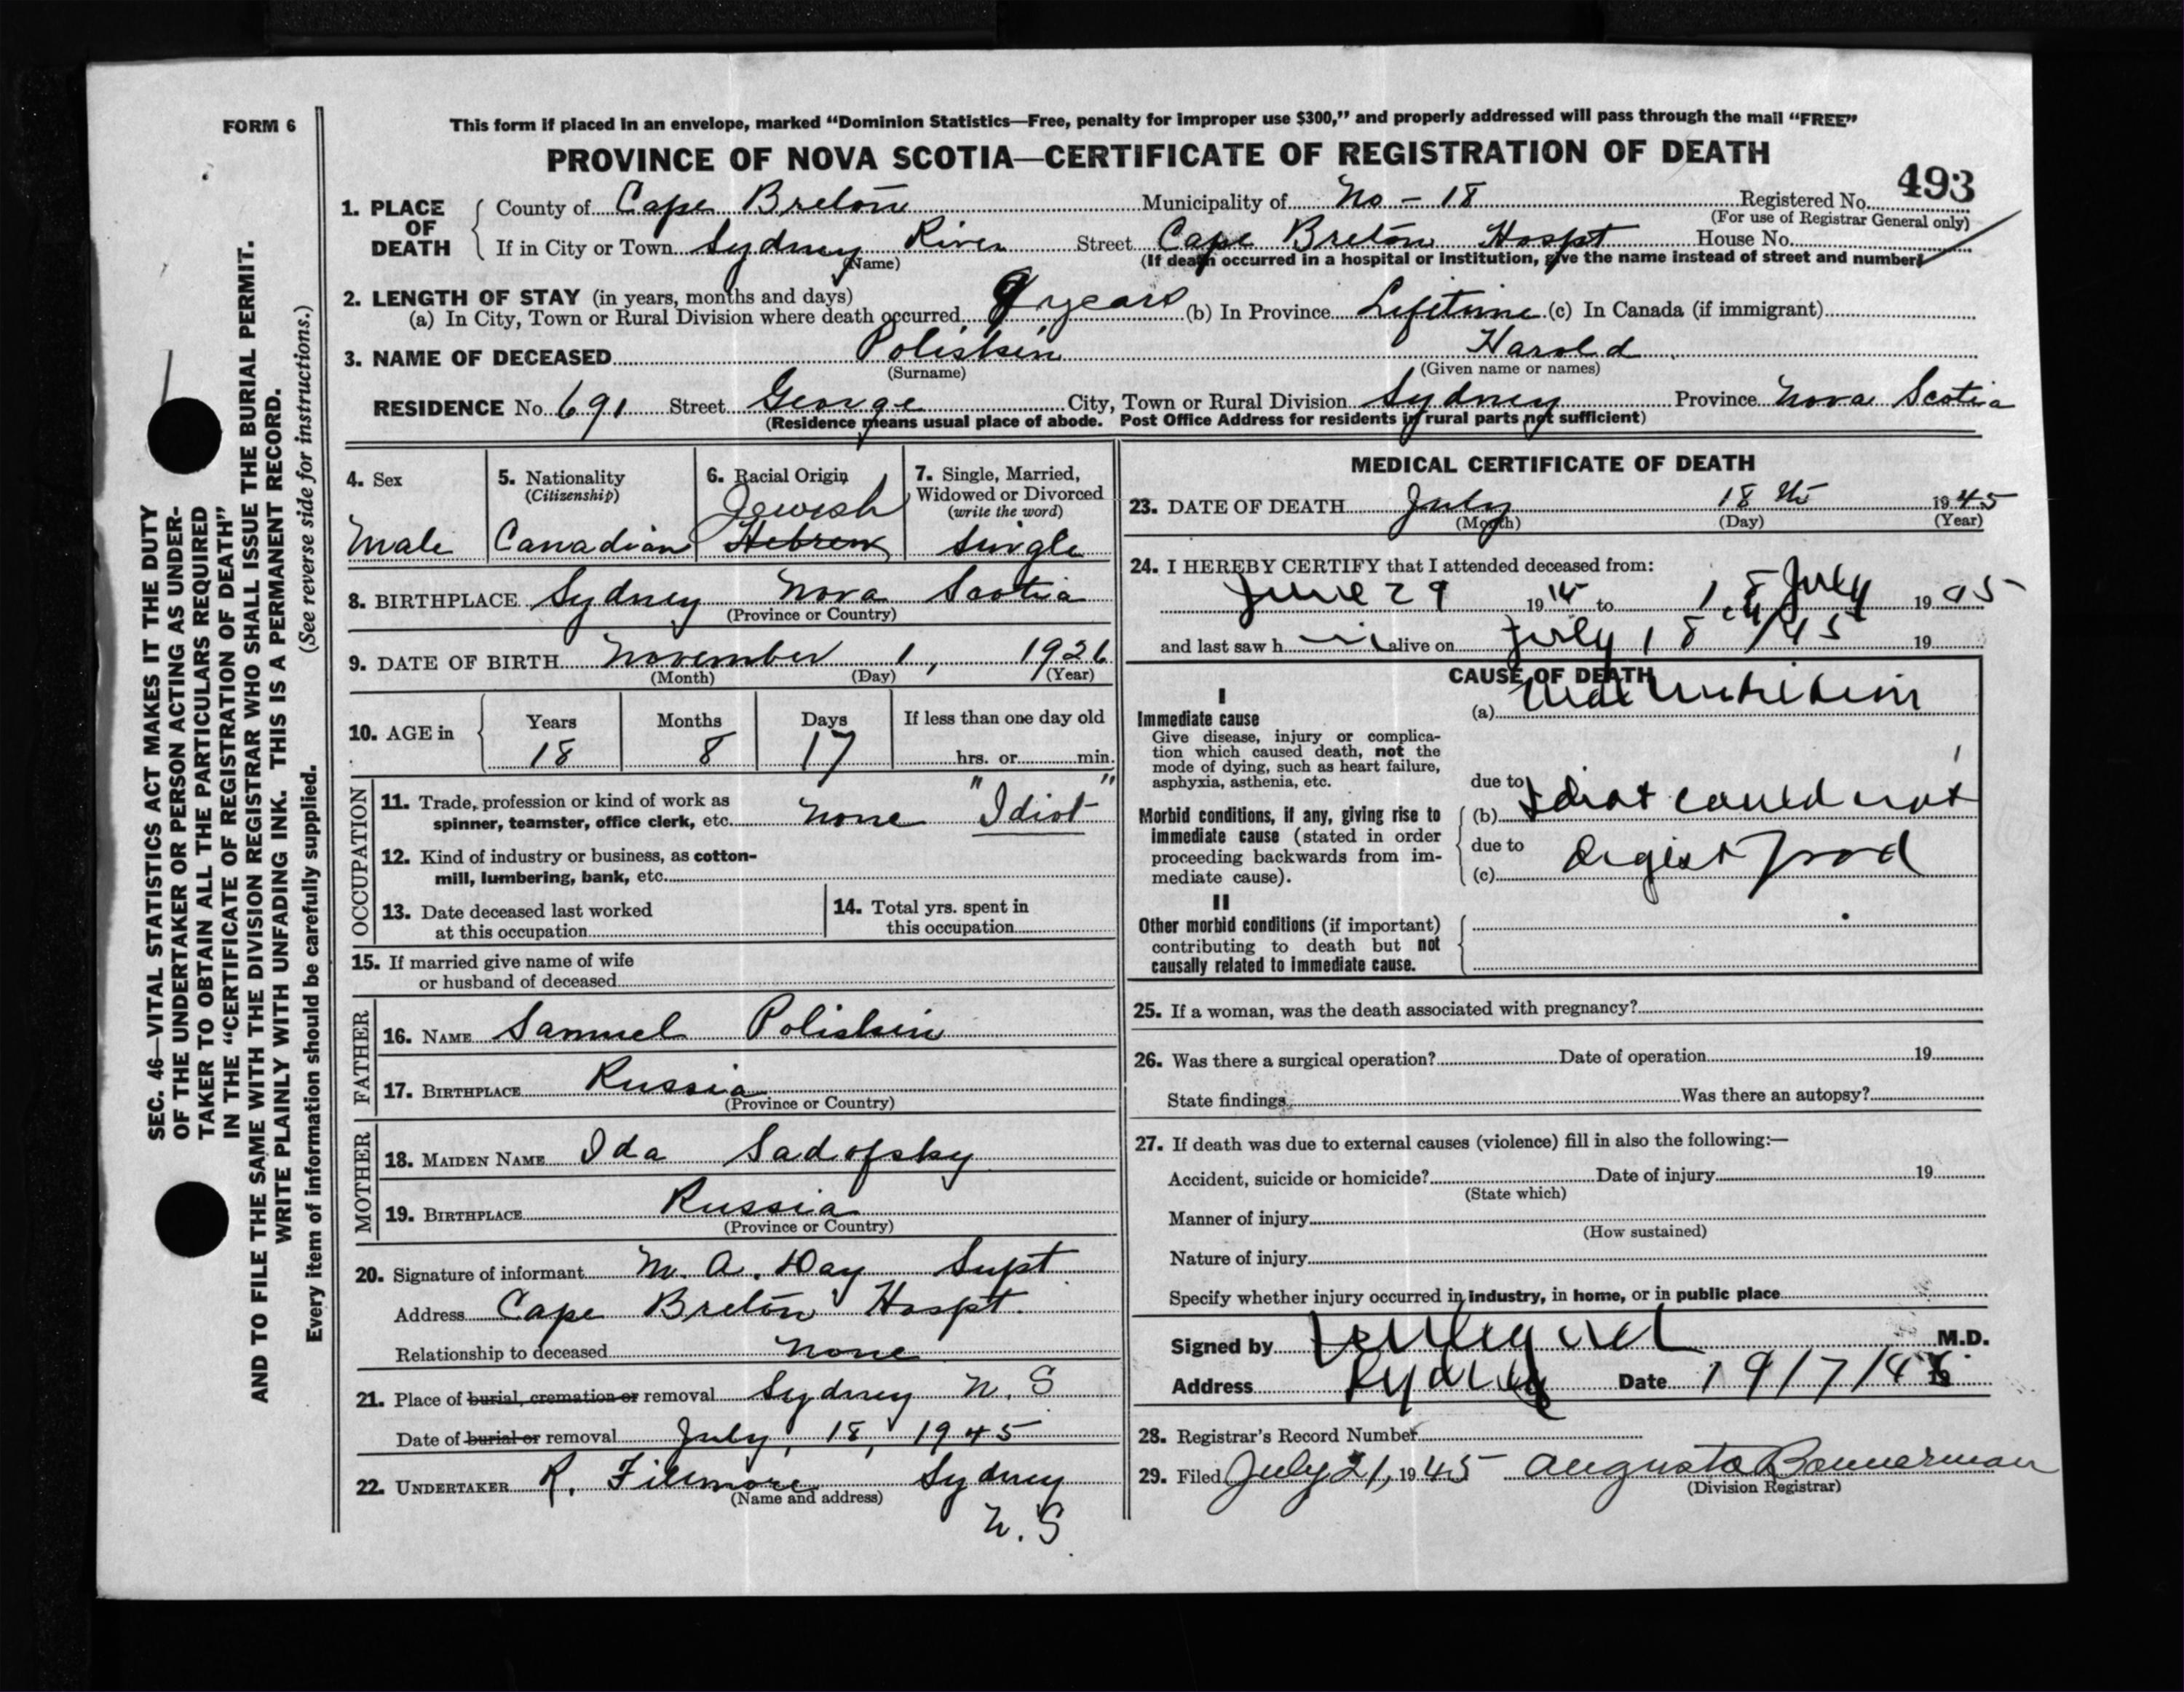 FORM 6
This form if placed in an envelope, marked “Dominion Statistics—Free, penalty for improper use $300,” and properly addressed will pass through the mail “FREE”
PROVINCE OF NOVA SCOTIA—CERTIFICATE OF REGISTRATION OF DEATH
493
1. PLACE OF DEATH
County of Cape Breton Municipality of No - 18 Registered No.
(For use of Registrar General only)
If in City or Town Sydney River Street Cape Breton Hospt House No.
(Name) (If death occurred in a hospital or institution, give the name instead of street and number)
2. LENGTH OF STAY (in years, months and days)
(a) In City, Town or Rural Division where death occurred 9 years (b) In Province Lifetime (c) In Canada (if immigrant)
3. NAME OF DECEASED Poliskin Harold
(Surname) (Given name or names)
RESIDENCE No. 691 Street George City, Town or Rural Division Sydney Province Nova Scotia
(Residence means usual place of abode. Post Office Address for residents in rural parts not sufficient)
4. Sex
Male
5. Nationality
(Citizenship)
Canadian
6. Racial Origin
Jewish
Hebrew
7. Single, Married,
Widowed or Divorced
(write the word)
Single
8. BIRTHPLACE Sydney Nova Scotia
(Province or Country)
9. DATE OF BIRTH November 1, 1926
(Month) (Day) (Year)
10. AGE in
Years Months Days If less than one day old
18 8 17 hrs. or min.
OCCUPATION
11. Trade, profession or kind of work as
spinner, teamster, office clerk, etc. None "Idiot"
12. Kind of industry or business, as cotton-
mill, lumbering, bank, etc.
13. Date deceased last worked
at this occupation
14. Total yrs. spent in
this occupation
15. If married give name of wife
or husband of deceased
FATHER
16. NAME Samuel Poliskin
17. BIRTHPLACE Russia
(Province or Country)
MOTHER
18. MAIDEN NAME Ida Sadofsky
19. BIRTHPLACE Russia
(Province or Country)
20. Signature of informant M. A. Day Supt
Address Cape Breton Hospt.
Relationship to deceased None
21. Place of burial, cremation or removal Sydney N. S
Date of burial or removal July, 18, 1945
22. UNDERTAKER R. Fillmore Sydney
(Name and address)
N. S
MEDICAL CERTIFICATE OF DEATH
23. DATE OF DEATH July 18th 1945
(Month) (Day) (Year)
24. I HEREBY CERTIFY that I attended deceased from:
June 29 19 to 18 July 19 45
and last saw h alive on July 18 /45 19
CAUSE OF DEATH
I
Immediate cause
Give disease, injury or complica-
tion which caused death, not the
mode of dying, such as heart failure,
asphyxia, asthenia, etc.
(a) Malnutrition
due to
Morbid conditions, if any, giving rise to
immediate cause (stated in order
proceeding backwards from im-
mediate cause).
(b) Idiot could not
due to
(c) digest food
II
Other morbid conditions (if important)
contributing to death but not
causally related to immediate cause.
25. If a woman, was the death associated with pregnancy?
26. Was there a surgical operation? Date of operation 19
State findings Was there an autopsy?
27. If death was due to external causes (violence) fill in also the following:—
Accident, suicide or homicide? Date of injury 19
(State which)
Manner of injury
(How sustained)
Nature of injury
Specify whether injury occurred in industry, in home, or in public place
Signed by M.D.
Address Sydney Date 19/7/45 19
28. Registrar's Record Number
29. Filed July 21, 1945 Augusta Bannerman
(Division Registrar)
SEC. 46—VITAL STATISTICS ACT MAKES IT THE DUTY
OF THE UNDERTAKER OR PERSON ACTING AS UNDER-
TAKER TO OBTAIN ALL THE PARTICULARS REQUIRED
IN THE “CERTIFICATE OF REGISTRATION OF DEATH”
AND TO FILE THE SAME WITH THE DIVISION REGISTRAR WHO SHALL ISSUE THE BURIAL PERMIT.
WRITE PLAINLY WITH UNFADING INK. THIS IS A PERMANENT RECORD.
Every item of information should be carefully supplied. (See reverse side for instructions.)